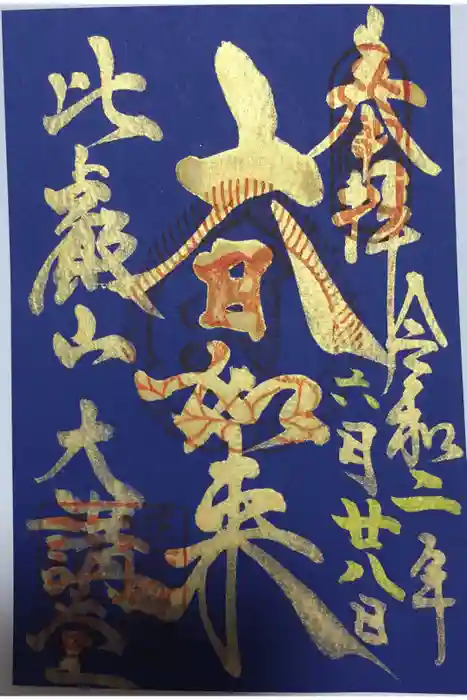 奉拝
令和二年
六月廿八日
大日如来
比叡山
大講堂